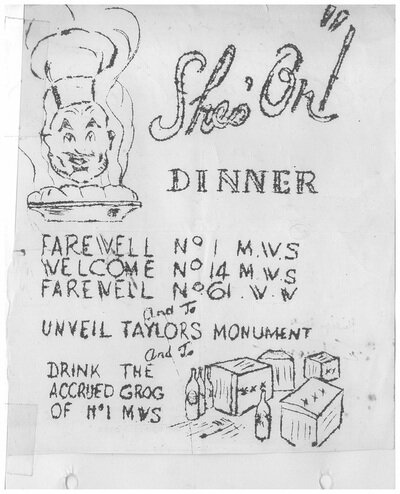 "She's On!"
DINNER
FAREWELL No 1 M.W.S
WELCOME No 14 M.W.S
FAREWELL No 61 .W.W
and To
UNVEIL TAYLORS MONUMENT
and To
DRINK THE
ACCRUED GROG
OF No 1 MWS
XXX
XXX